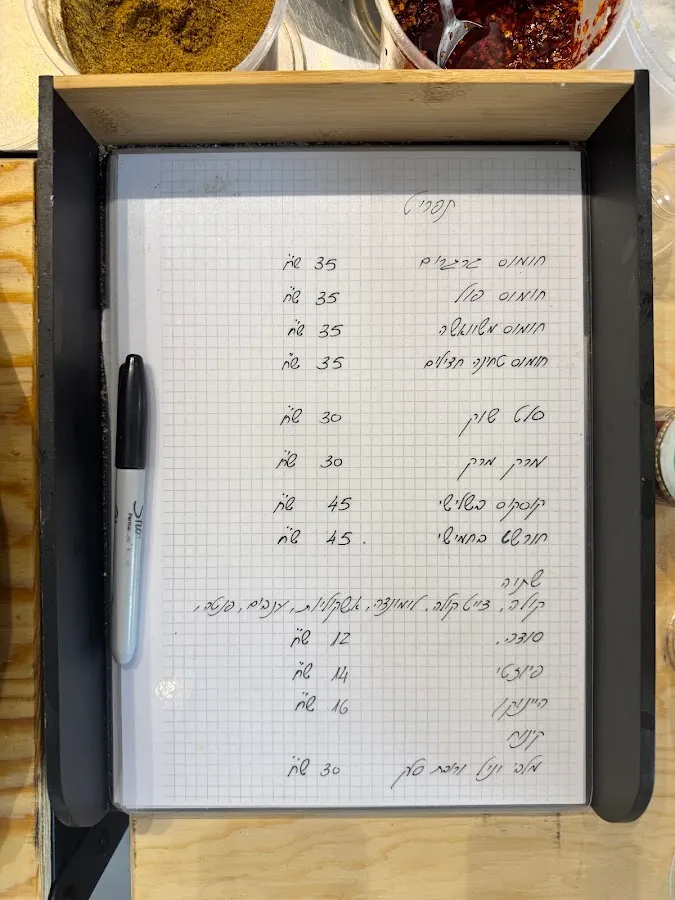 תפריט
חומוס גרגרים 35 ש"ח
חומוס פול 35 ש"ח
חומוס משוואשה 35 ש"ח
חומוס טחינה חצילים 35 ש"ח
סלט שוק 30 ש"ח
מרק מרק 30 ש"ח
קוסקוס בשלישי 45 ש"ח
חורשט בחמישי 45 ש"ח
שתוה
קולה, דייט קולה, לימונדה, אשקוליות, ענבים, פנטה,
סודה. 12 ש"ח
פיוזטי 14 ש"ח
היינקן 16 ש"ח
קינוח
מלבי וניל וריבת סלק 30 ש"ח